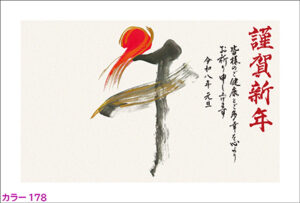 謹賀新年
皆様のご健康とご多幸を心より
お祈り申し上げます
令和八年 元旦
午
カラー 178